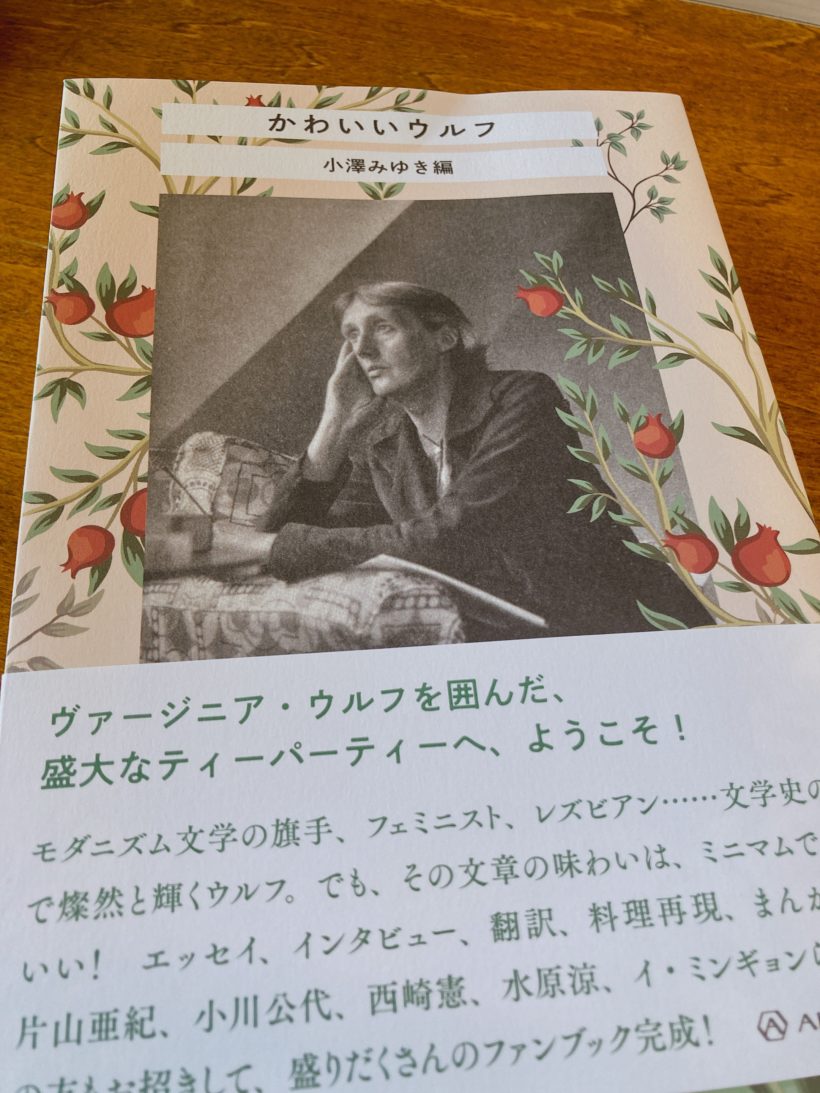 かわいいウルフ
小澤みゆき編
ヴァージニア・ウルフを囲んだ、
盛大なティーパーティーへ、ようこそ！
モダニズム文学の旗手、フェミニスト、レズビアン……文学史の
で燦然と輝くウルフ。でも、その文章の味わいは、ミニマムで
いい！　エッセイ、インタビュー、翻訳、料理再現、まんが
片山亜紀、小川公代、西崎憲、水原涼、イ・ミンギョン
の方もお招きして、盛りだくさんのファンブック完成！